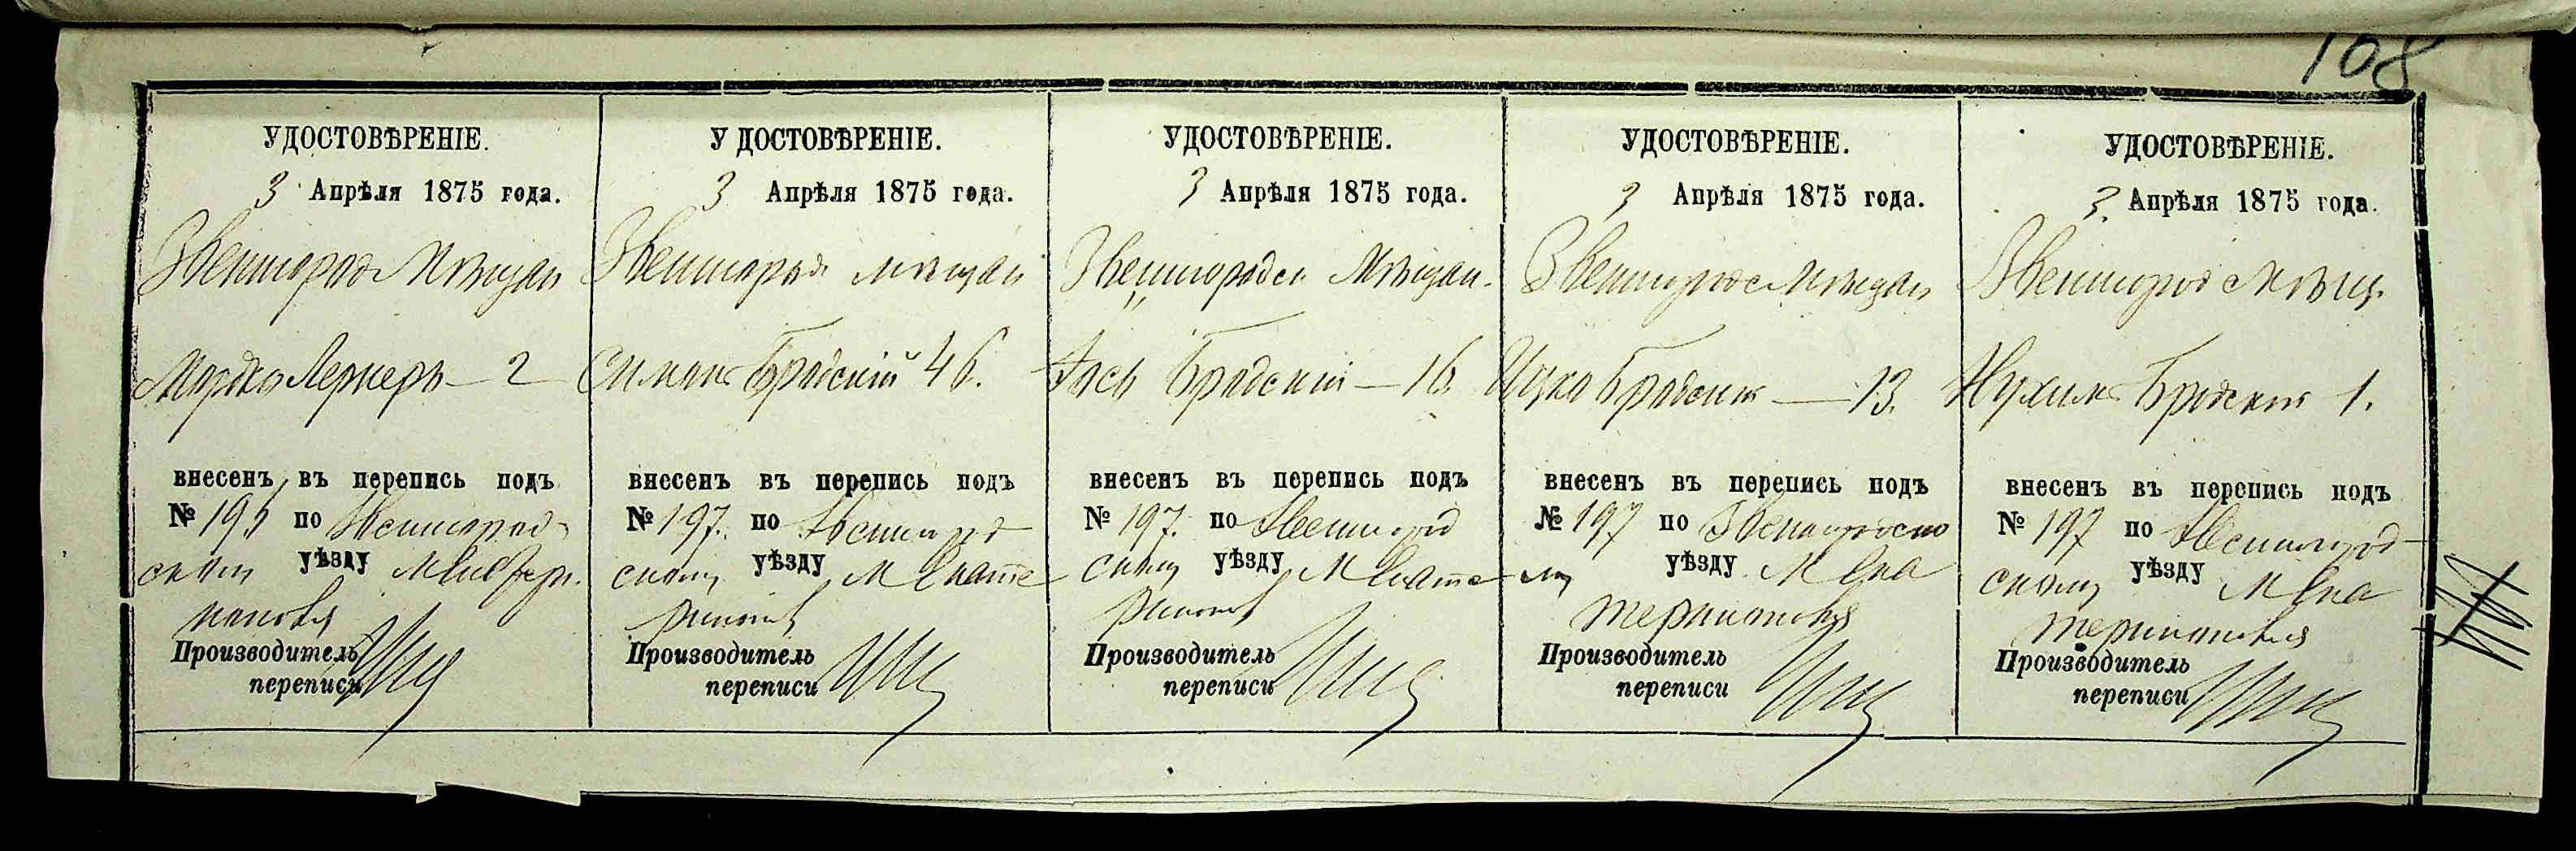 108
УДОСТОВѢРЕНІЕ.
3 Апрѣля 1875 года.
Звенигород Мѣщан
Мордко Лернеръ — 2
внесенъ въ перепись подъ
№ 195 по Звенигород-
скому уѣзду М Екатери-
нополя
Производитель
переписи
УДОСТОВѢРЕНІЕ.
3 Апрѣля 1875 года.
Звенигород мѣщан
Симонъ Бродскій 46.
внесенъ въ перепись подъ
№ 197. по Звенигород
скому уѣзду М Екате
ринопол
Производитель
переписи
УДОСТОВѢРЕНІЕ.
3 Апрѣля 1875 года.
Звенигородск Мѣщан.
Іось Бродскій — 16.
внесенъ въ перепись подъ
№ 197. по Звенигород
скому уѣзду М Екате
ринопол
Производитель
переписи
УДОСТОВѢРЕНІЕ.
3 Апрѣля 1875 года.
Звенигородс Мѣщан
Ицко Бродскій — 13.
внесенъ въ перепись подъ
№ 197 по Звенигородско
му уѣзду М Ека
теринополя
Производитель
переписи
УДОСТОВѢРЕНІЕ.
3. Апрѣля 1875 года.
Звенигород Мѣщ.
Нухимъ Бродскій 1.
внесенъ въ перепись подъ
№ 197 по Звенигород-
скому уѣзду М Ека
теринополя
Производитель
переписи